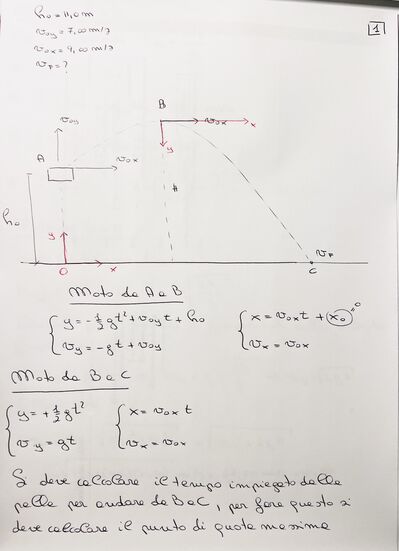 h₀ = 11,0 m
v₀y = 7,00 m/s
v₀x = 9,00 m/s
v_F = ?
1
B
v₀y
v₀x
x
y
A
v₀x
H
h₀
y
v_F
O
x
C
Moto da A a B
y = -½gt² + v₀y t + h₀
x = v₀x t + x₀ = 0
vy = -gt + v₀y
vx = v₀x
Moto da B a C
y = +½gt²
x = v₀x t
vy = gt
vx = v₀x
Si deve calcolare il tempo impiegato dalla
palla per andare da B a C, per fare questo si
deve calcolare il punto di quota massima